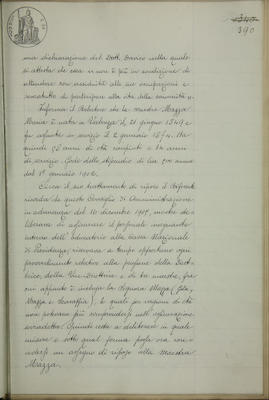 390
una dichiarazione del Dott. Savico nella quale
si attesta che essa non è più in condizione di
attendere con assiduità alle sue occupazioni e
soprattutto di partecipare alla vita della comunità.
Informa il Relatore che la maestra Mazza
Maria è nata a il 21 giugno 1849 e
fu assunta in servizio il 2 gennaio 1874. Ha
quindi anni di età compiuti e 34 anni
di servizio. Gode dello stipendio di lire annue
dal 1° gennaio 1902.
Circa il suo trattamento di riposo il Referente
ricorda che questo Consiglio di Amministrazione
in adunanza del 10 dicembre 1907, mentre de-
liberava di assicurare il personale insegnante
interno dell' alla Cassa Nazionale
di Previdenza, riservava a tempo opportuno ogni
provvedimento relativo alla pensione della Diret-
trice, della Vice-Direttrice e di tre maestre, fra
cui appunto è inclusa la Signora Mazza
Mazza e , le quali per ragione di età
non potevano più comprendersi nell'assicurazione
sovraddetta. Quindi resta a deliberare in quale
misura e sotto qual forma possa ora con-
cedersi un assegno di riposo alla maestra
Mazza.